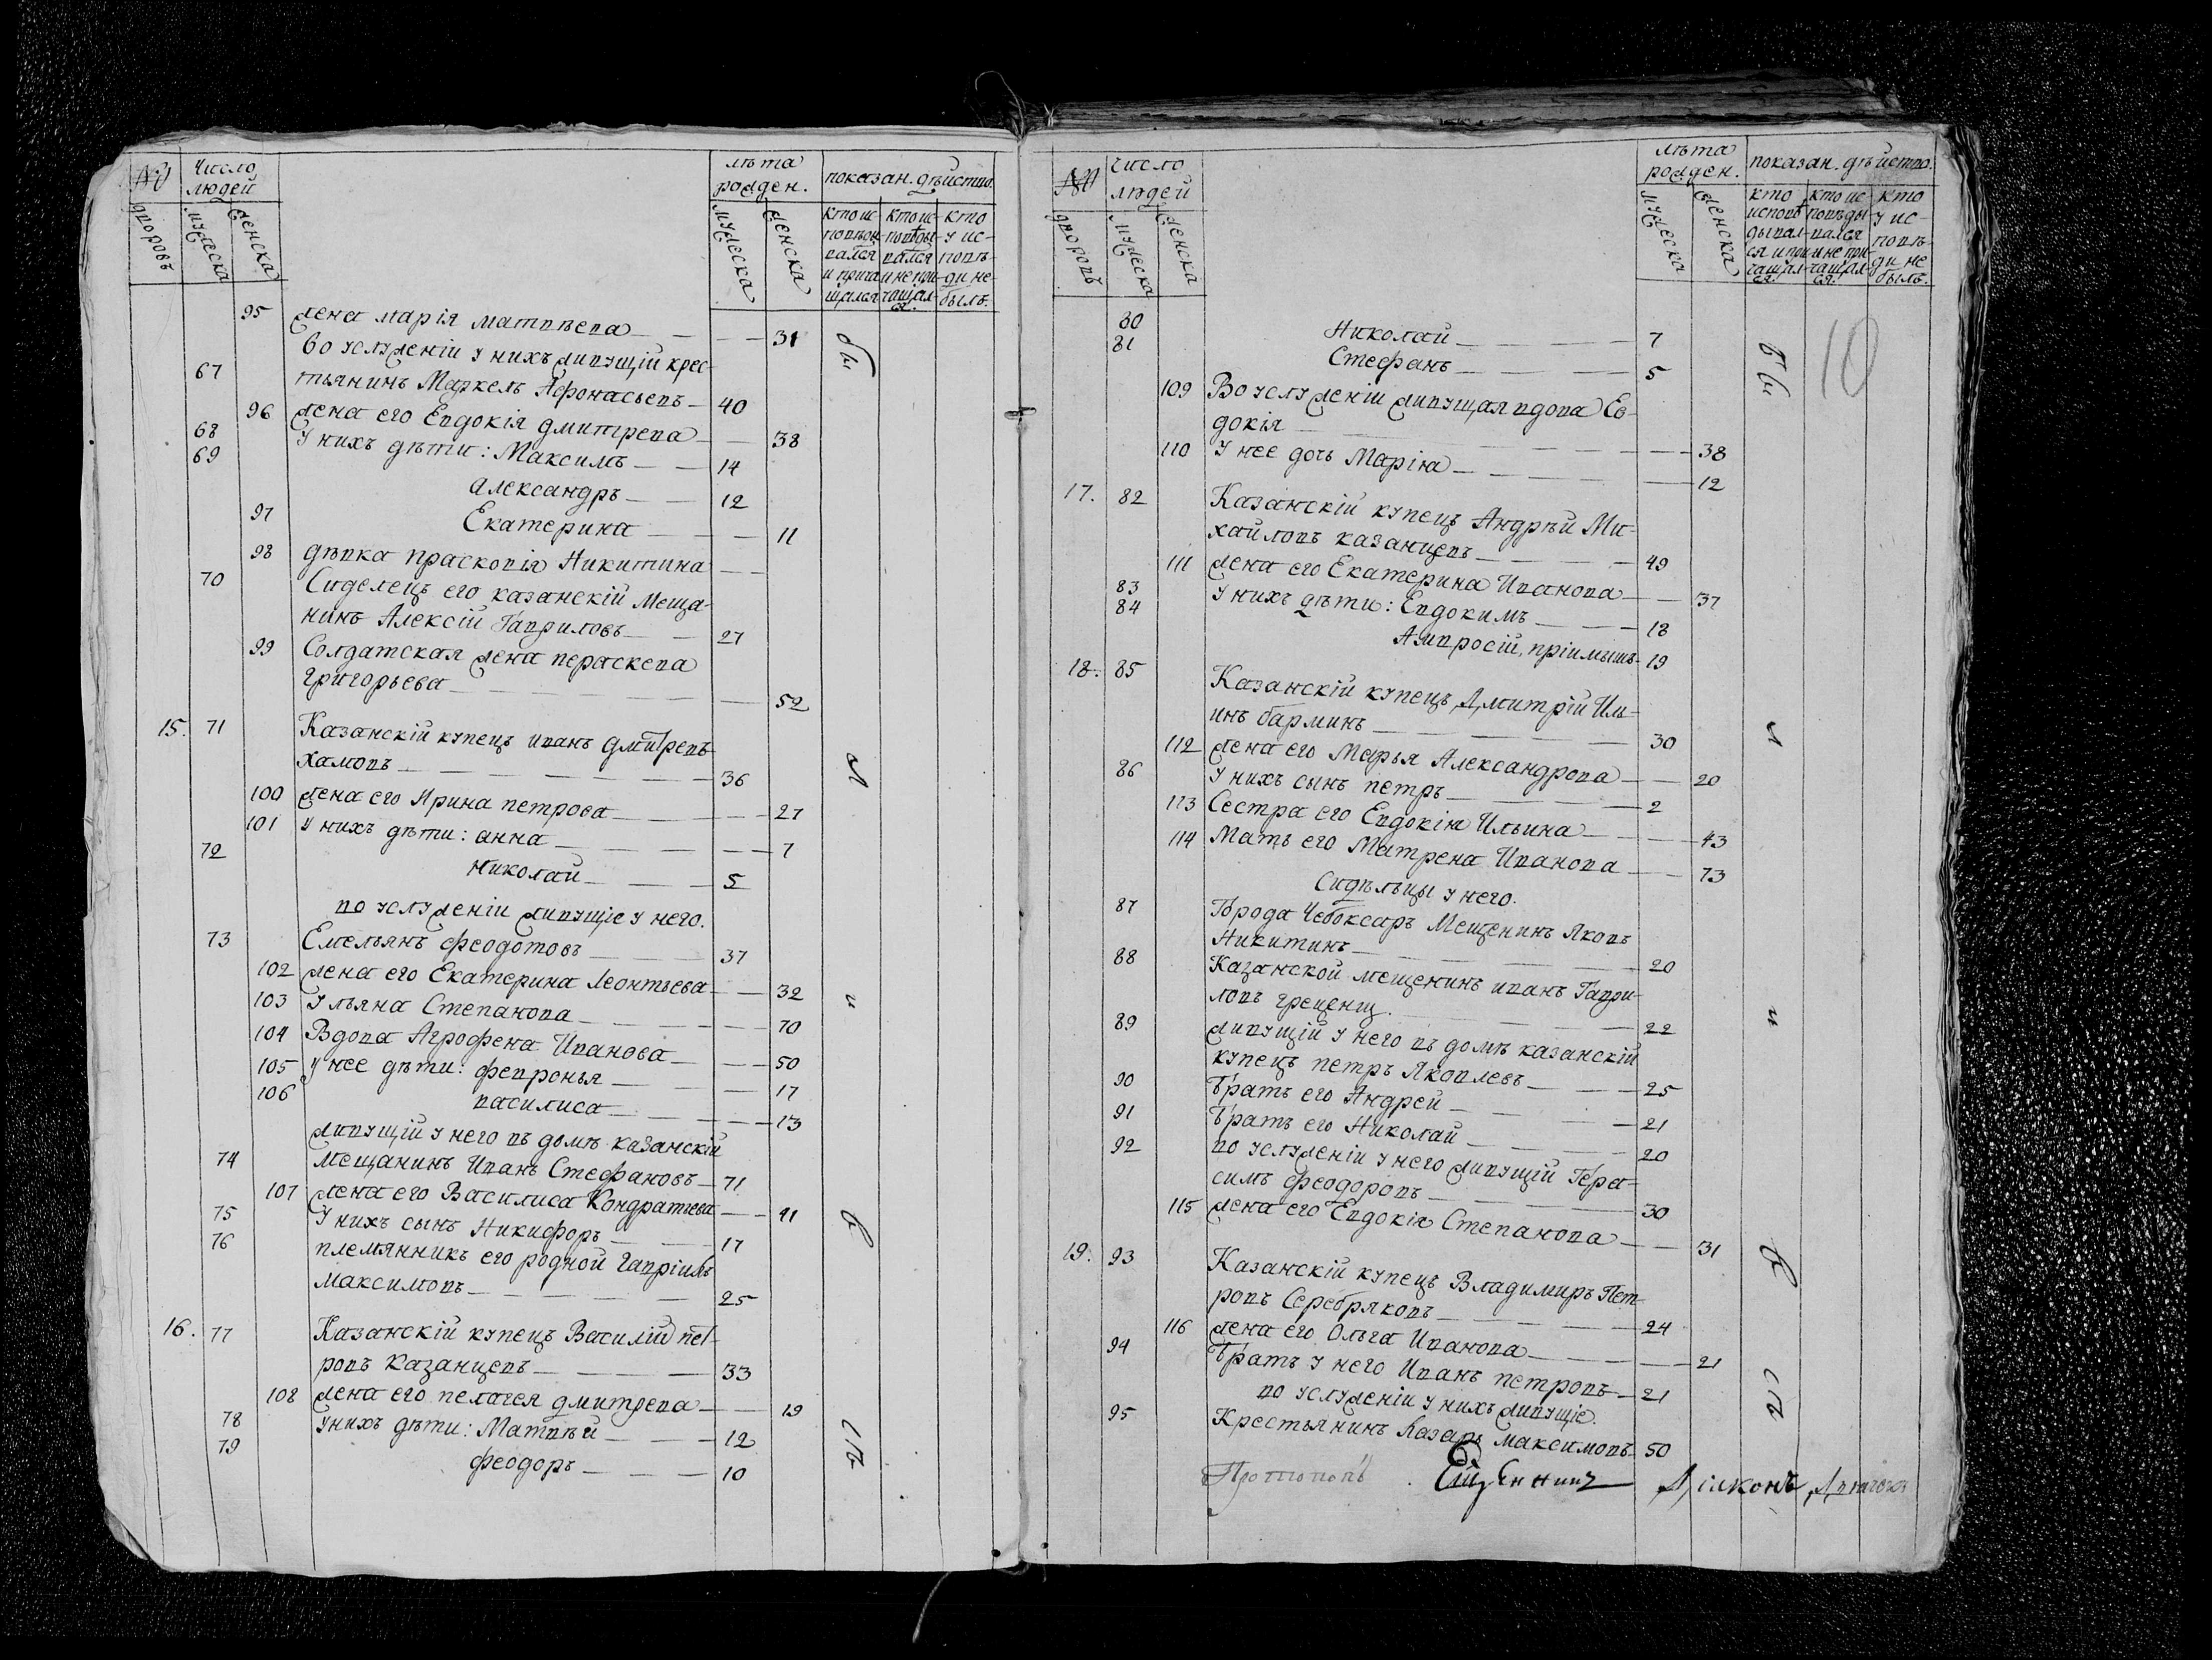 №
Число людей
лѣта рожден.
показан. дѣйство.
дворовъ
мужеска
женска
мужеска
женска
кто исповѣдывался и причащался
кто исповѣдывался и не причащался.
кто у исповѣди не былъ.
95 жена Марія Матвѣева — 31
Во услуженіи у нихъ живущій крес-
67 тьянинъ Маркелъ Афонасьевъ — 40
96 жена его Евдокія Дмитрева — 38
68 У нихъ дѣти: Максимъ — 14
69 Александръ — 12
97 Екатерина — 11
98 дѣвка Прасковія Никитина —
70 Сиделецъ его казанскій меща-
нинъ Алексій Гавриловъ — 27
99 Солдатская жена Пераскева
Григорьева — 52
15. 71 Казанскій купецъ Иванъ Дмитревъ
Хамовъ — 36
100 жена его Ирина Петрова — 27
101 У нихъ дѣти: Анна — 7
72 Николай — 5
во услуженіи живущіе у него.
73 Емельянъ Феодотовъ — 37
102 жена его Екатерина Леонтьева — 32
103 Ульяна Степанова — 70
104 Вдова Агрофена Иванова — 50
105 У нее дѣти: Февронья — 17
106 Василиса — 13
живущій у него въ домѣ казанскій
74 мещанинъ Иванъ Стефановъ — 71
107 жена его Василиса Кондратьева — 41
75 У нихъ сынъ Никифоръ — 17
76 племянникъ его родной Гавріилъ
Максимовъ — 25
16. 77 Казанскій купецъ Василій Пет-
ровъ Казанцевъ — 33
108 жена его Пелагея Дмитрева — 19
78 У нихъ дѣти: Матвѣй — 12
79 Феодоръ — 10
№
Число людей
лѣта рожден.
показан. дѣйство.
дворовъ
мужеска
женска
мужеска
женска
кто исповѣдывался и причащался.
кто исповѣдывался и не причащался.
кто у исповѣди не былъ.
10
80 Николай — 7
81 Стефанъ — 5
109 Во услуженіи живущая вдова Ев-
докія — 38
110 У нее дочь Марія — 12
17. 82 Казанскій купецъ Андрѣй Ми-
хайловъ Казанцевъ — 49
111 жена его Екатерина Иванова — 37
83 У нихъ дѣти: Евдокимъ — 18
84 Амвросій, пріимышъ — 19
18. 85 Казанскій купецъ Дмитрій Иль-
инъ Барминъ — 30
112 жена его Марья Александрова — 20
86 У нихъ сынъ Петръ — 2
113 Сестра его Евдокія Ильина — 43
114 Мать его Матрена Иванова — 73
Сидѣльцы у него.
87 Города Чебоксаръ Мещенинъ Яковъ
Никитинъ — 20
88 Казанской мещенинъ Иванъ Гаври-
ловъ — 22
89 живущій у него въ домѣ казанскій
купецъ Петръ Яковлевъ — 25
90 Братъ его Андрей — 21
91 Братъ его Николай — 20
92 во услуженіи у него живущій Гера-
симъ Феодоровъ — 30
115 жена его Евдокія Степанова — 31
19. 93 Казанскій купецъ Владимиръ Пет-
ровъ Серебряковъ — 24
116 жена его Ольга Иванова — 21
94 Братъ у него Иванъ Петровъ — 21
во услуженіи у нихъ живущіе.
95 Крестьянинъ Лазарь Максимовъ 50
Протопопъ Діяконъ